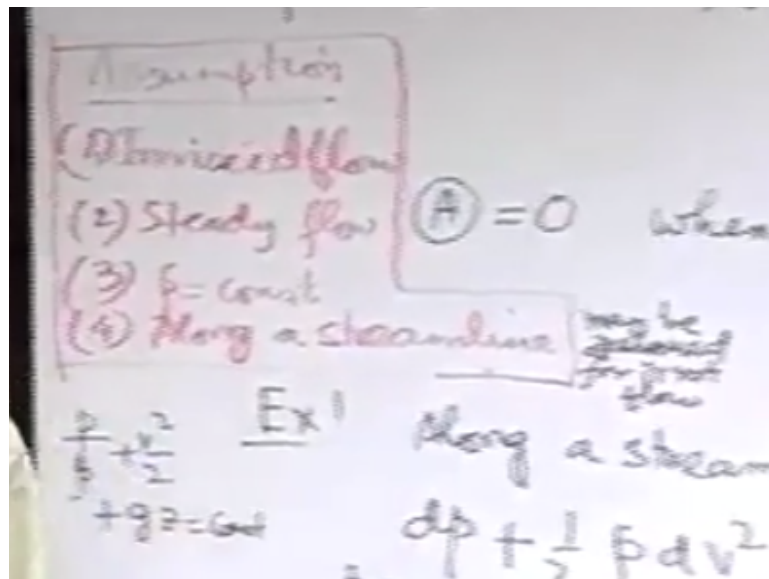 Assumption
(1) Inviscid flow
(2) Steady flow
(3) ρ = const
(4) Along a streamline
A = 0 when
may be
for irrot
flow
p/ρ + v²/2
+ gz = const
Ex 1
Along a stream
dp + 1/2 ρ dv²